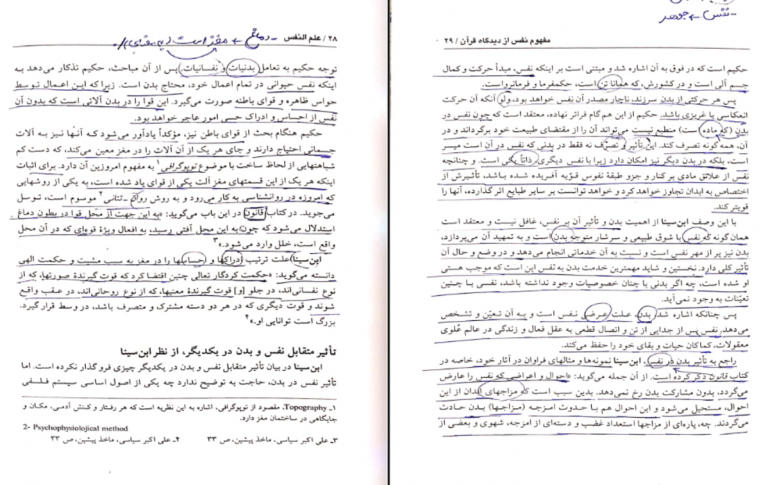 ۲۸ / علم النفس
دماغ ← مغز است
توجه حکیم به تعامل بدنیات و نفسانیات پس از آن مباحث، حکیم تذکار می‌دهد به
اینکه نفس حیوانی در تمام اعمال خود، محتاج بدن است. زیرا که این اعمال توسط
حواس ظاهره و قوای باطنه صورت می‌گیرد. این قوا را در بدن آلاتی است که بدون آن
نفس از احساس و ادراک حسی امور عاجز خواهد بود.
حکیم هنگام بحث از قوای باطن نیز، مؤکداً یادآور می‌شود که آنها نیز به آلات
جسمانی احتیاج دارند و جای هر یک از آن آلات را در مغز معین می‌کند، که دست کم
شباهتهایی از لحاظ ساخت با موضوع توپوگرافی۱ به مفهوم امروزین آن دارد. برای اثبات
اینکه هر یک از این قسمتهای مغز آلت یکی از قوای یاد شده است، به یکی از روشهایی
که امروزه در روانشناسی به کار می‌رود و به روش روان ـ تنانی۲ موسوم است، توسل
می‌جوید. در کتاب قانون در این باب می‌گوید: «به این جهت از محل قوا در بطون دماغ
استدلال می‌شود که چون به این محل آفتی رسید، به افعال ویژهٔ قوه‌ای که در آن محل
واقع است، خلل وارد می‌شود.»۳
ابن‌سینا علت ترتیب ادراکها و حساسها را در مغز به سبب مشیت و حکمت الهی
دانسته می‌گوید: «حکمت کردگار تعالی چنین اقتضا کرد که قوت گیرندهٔ صورتها، که از
نوع نفسانی‌اند، در جلو [و] قوت گیرندهٔ معنیها، که از نوع روحانی‌اند، در عقب واقع
شوند و قوت دیگری که در هر دو دسته مشترک و متصرف باشد، در وسط قرار گیرد.
بزرگ است توانایی او.»۴
تأثیر متقابل نفس و بدن در یکدیگر، از نظر ابن‌سینا
ابن‌سینا در بیان تأثیر متقابل نفس و بدن در یکدیگر چیزی فروگذار نکرده است. اما
تأثیر نفس در بدن، حاجت به توضیح ندارد چه یکی از اصول اساسی سیستم فلسفی
۱ـ Topography، مقصود از توپوگرافی، اشاره به این نظریه است که هر رفتار و کنش آدمی، مکان و
جایگاهی در ساختمان مغز دارد.
2- Psychophysiolojical method
۳ـ علی اکبر سیاسی، ماخذ پیشین، ص ۳۳ ۴ـ علی اکبر سیاسی، ماخذ پیشین، ص ۳۳
نفس ← جوهر
مفهوم نفس از دیدگاه قرآن / ۲۹
حکیم است که در فوق به آن اشاره شد و مبتنی است بر اینکه نفس، مبدأ حرکت و کمال
جسم آلی است و در کشورش، که همانا تن است، حکمفرما و فرمانرواست.
پس هر حرکتی از بدن سرزند، ناچار مصدر آن نفس خواهد بود، ولو آنکه آن حرکت
انعکاسی یا غریزی باشد. حکیم از این هم گام فراتر نهاده، معتقد است که چون نفس در
بدن (که ماده است) منطبع نیست می‌تواند آن را از مقتضای طبیعت خود برگرداند و در
آن، همه‌گونه تصرف کند. این تأثیر و تصرف نه فقط در بدنی که نفس در آن است میسر
است، بلکه در بدن دیگر نیز امکان دارد زیرا با نفس دیگری ذاتاً یکی است. و چنانچه
نفس از علائق مادی بر کنار و جزو طبقهٔ نفوس قویّه آفریده شده باشد، تأثیرش از
اختصاص به ابدان تجاوز خواهد کرد و خواهد توانست بر سایر طبایع اثر گذارده، آنها را
قویتر کند.
با این وصف ابن‌سینا از اهمیت بدن و تأثیر آن بر نفس، غافل نیست و معتقد است
همان‌گونه که نفس با شوق طبیعی و سرشار متوجه بدن است و به تمهید آن می‌پردازد،
بدن نیز پر از مهر نفس است و نسبت به آن خدماتی انجام می‌دهد و در وضع و حال آن
تأثیر کلی دارد. نخستین و شاید مهمترین خدمت بدن به نفس این است که موجب هستی
آن شده است، چه اگر بدنی با چنان خصوصیات وجود نداشته باشد، نفسی با چنین
تعیّنات به وجود نمی‌آید.
پس چنانکه اشاره شد بدن، علت عَرَضی نفس است و به آن تعیّن و تشخص
می‌دهد. نفس پس از جدایی از تن و اتصال قطعی به عقل فعال و زندگی در عالم عُلوی
معقولات، کماکان حیات و بقای خود را حفظ می‌کند.
راجع به تأثیر بدن در نفس، ابن‌سینا نمونه‌ها و مثالهای فراوان در آثار خود، خاصه در
کتاب قانون ذکر کرده است. از آن جمله می‌گوید: «احوال و اعراضی که نفس را عارض
گردد، بدون مشارکت بدن رخ نمی‌دهد. بدین سبب است که مزاجهای ابدان از این
احوال، مستحیل می‌شود و این احوال هم با حدوث امزجه (مزاجها) بدن حادث
می‌گردند. چه، پاره‌ای از مزاجها استعداد غضب و دسته‌ای از امزجه، شهوی و بعضی از